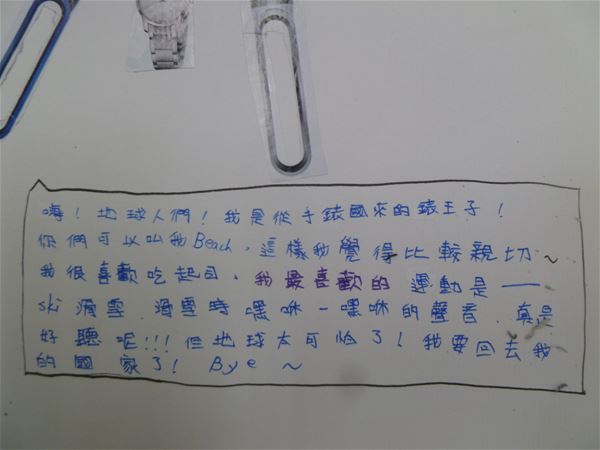 嗨！地球人們！我是從手錶國來的錶王子！
你們可以叫我Beach，這樣我覺得比較親切~
我很喜歡吃起司、我最喜歡的運動是——
ski 滑雪．滑雪時嘿咻－嘿咻的聲音．真是
好聽呢!!!但地球太可怕了！我要回去我
的國家了！Bye ~